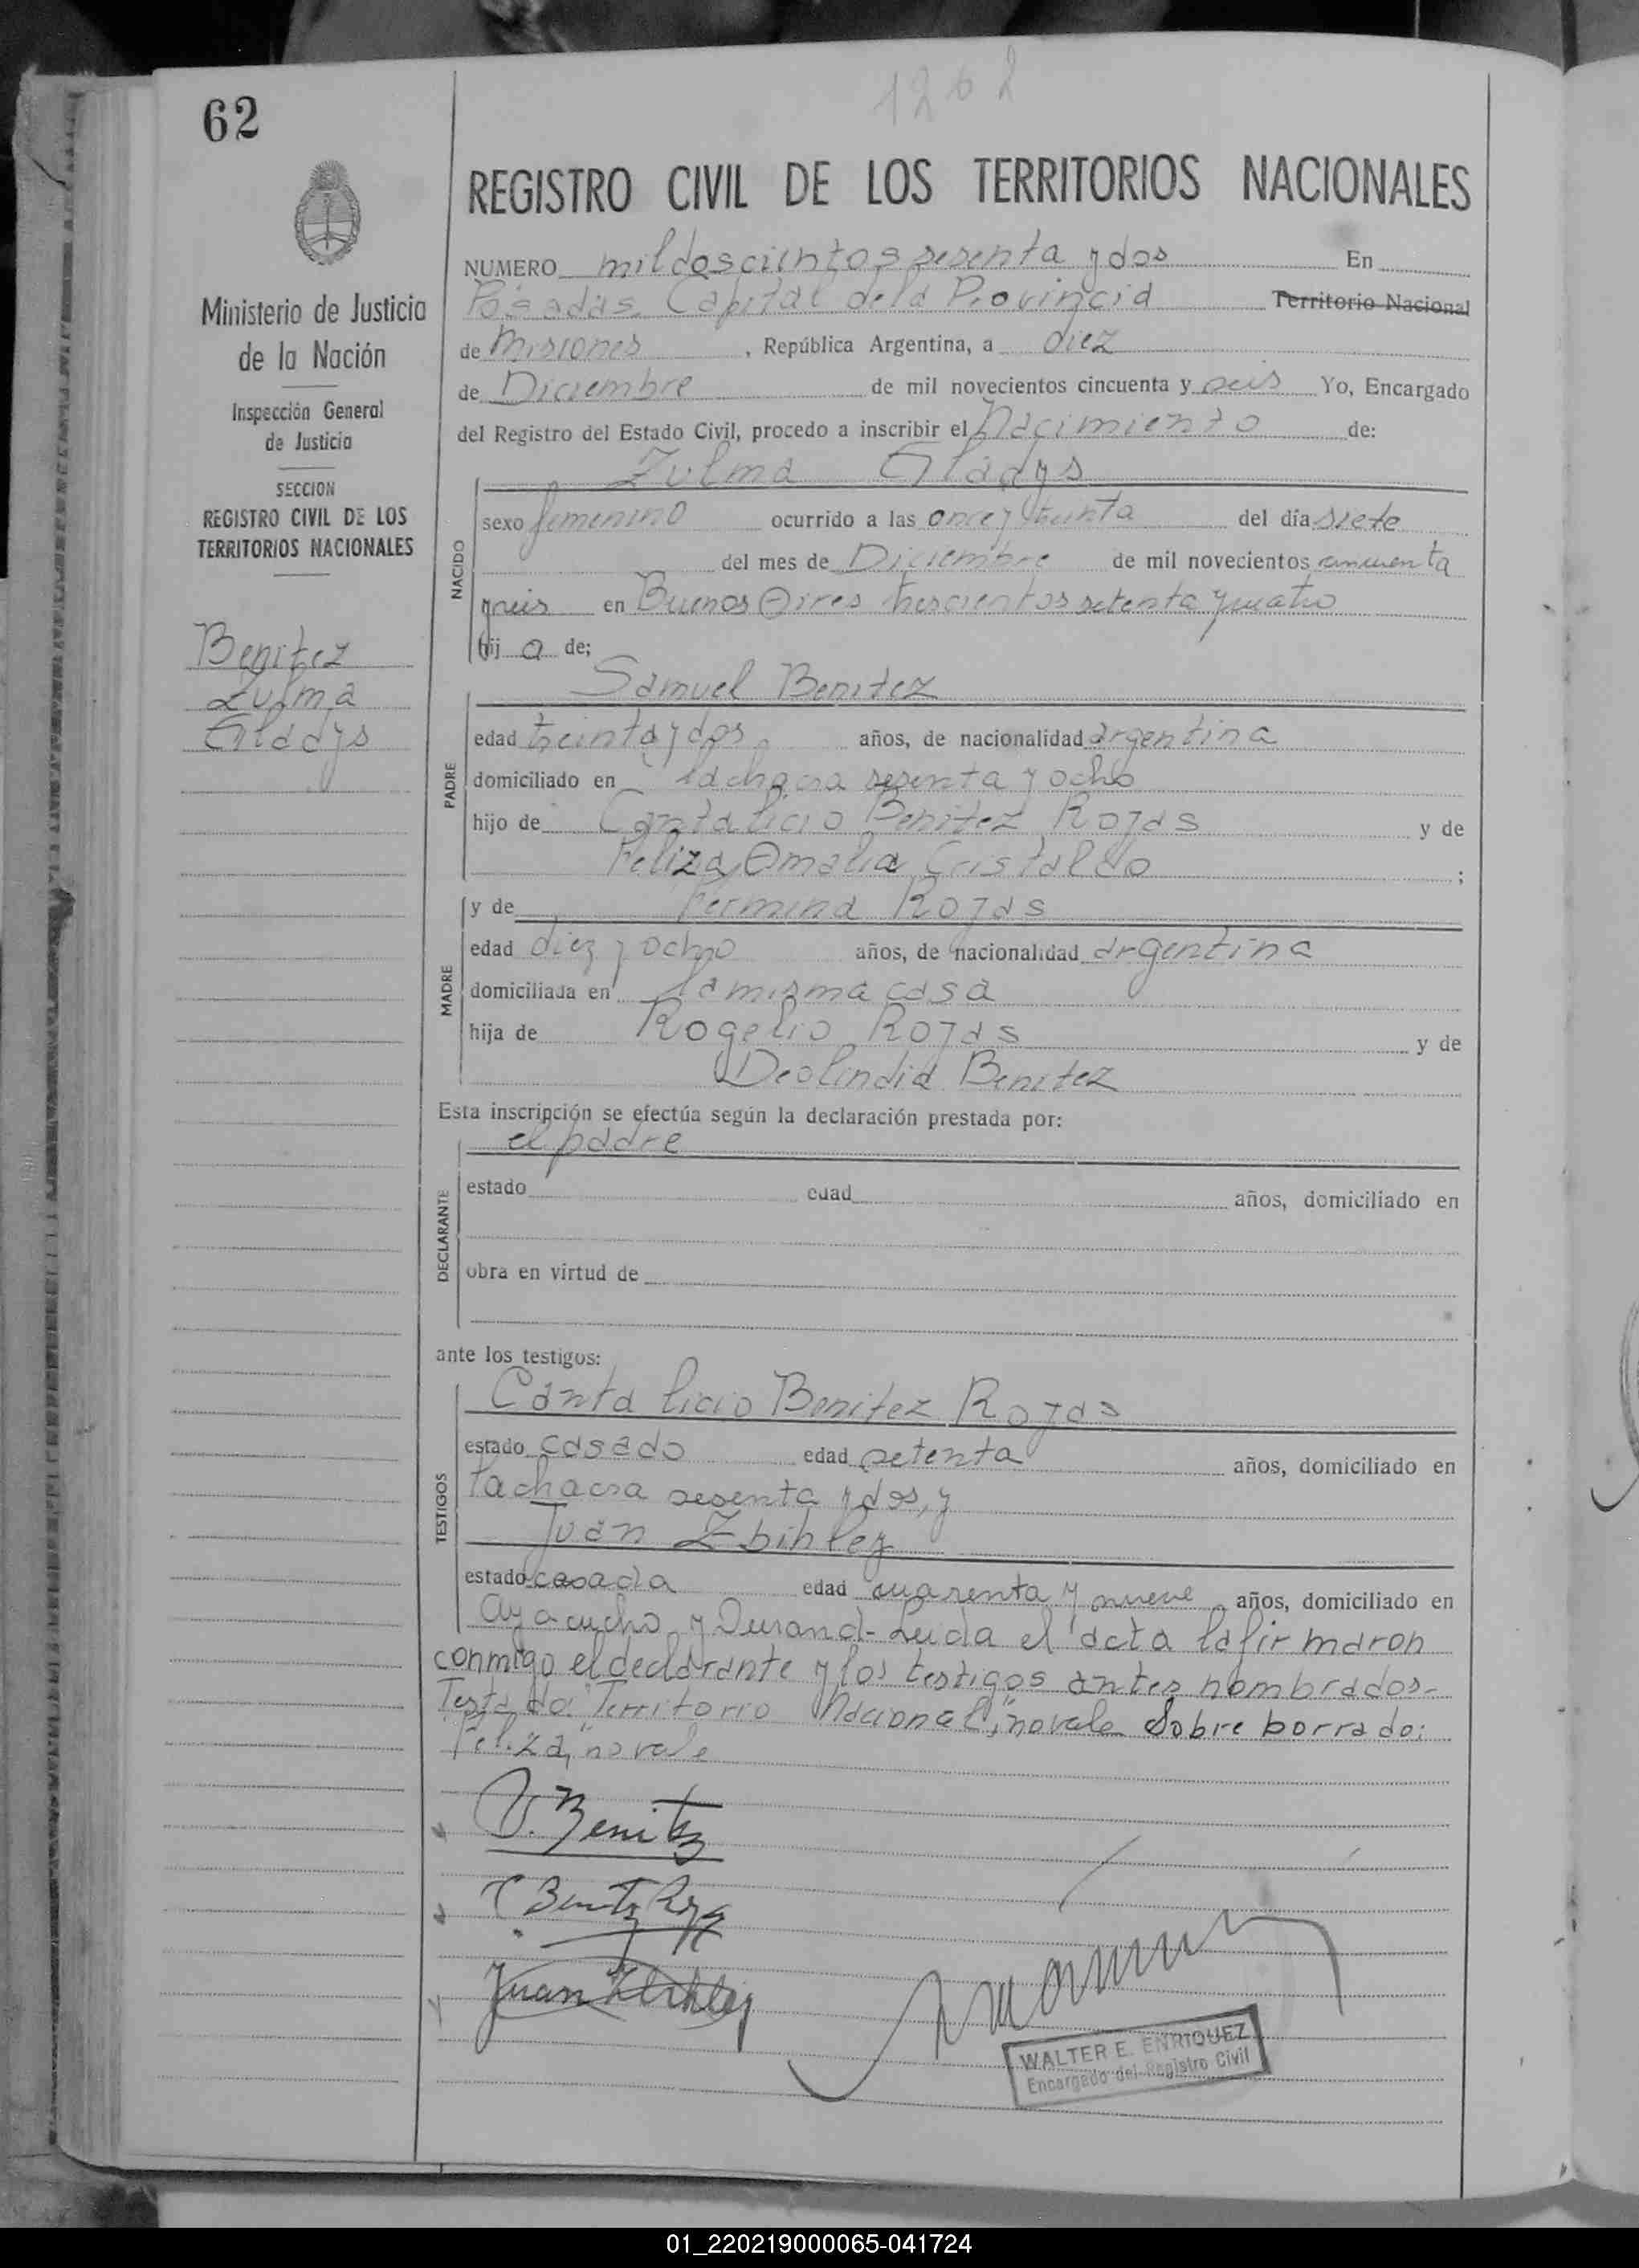 1262
62
REGISTRO CIVIL DE LOS TERRITORIOS NACIONALES
Ministerio de Justicia
de la Nación
Inspección General
de Justicia
SECCION
REGISTRO CIVIL DE LOS
TERRITORIOS NACIONALES
Benitez
Zulma
Gladys
NUMERO mil doscientos sesenta y dos En
Posadas. Capital de la Provincia Territorio Nacional
de Misiones, República Argentina, a diez
de Diciembre de mil novecientos cincuenta y seis Yo, Encargado
del Registro del Estado Civil, procedo a inscribir el Nacimiento de:
Zulma Gladys
NACIDO
sexo femenino ocurrido a las once y treinta del día siete
del mes de Diciembre de mil novecientos cincuenta
y seis en Buenos Aires trescientos setenta y cuatro
hij a de;
Samuel Benitez
PADRE
edad treinta y dos años, de nacionalidad argentina
domiciliado en la chacra sesenta y ocho
hijo de Cantalicio Benitez Rojas y de
Feliza Amalia Cristaldo ;
y de Fermina Rojas
MADRE
edad diez y ocho años, de nacionalidad argentina
domiciliada en la misma casa
hija de Rogelio Rojas y de
Deolindia Benitez
Esta inscripción se efectúa según la declaración prestada por:
el padre
DECLARANTE
estado edad años, domiciliado en
obra en virtud de
ante los testigos:
Cantalicio Benitez Rojas
TESTIGOS
estado casado edad setenta años, domiciliado en
la chacra sesenta y dos, y
Juan Zbihley
estado casada edad cuarenta y nueve años, domiciliado en
Ayacucho y Durand- Leida el acta la firmaron
conmigo el declarante y los testigos antes nombrados-
Testado: "Territorio Nacional", no vale Sobre borrado:
"Feliza", no vale
Benitez
C Benitez Rojas
Juan Zbihley
WALTER E. ENRIQUEZ
Encargado del Registro Civil
01_220219000065-041724